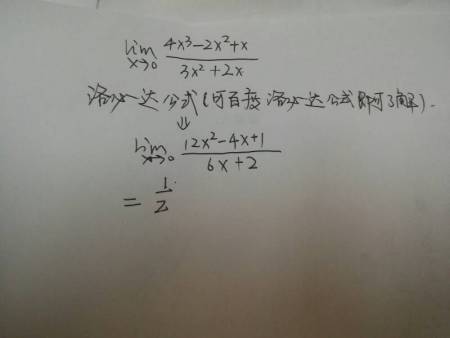 lim x→0 (4x³-2x²+x)/(3x²+2x)
洛必达公式(可百度洛必达公式即可了解).
⇓
lim x→0 (12x²-4x+1)/(6x+2)
= 1/2